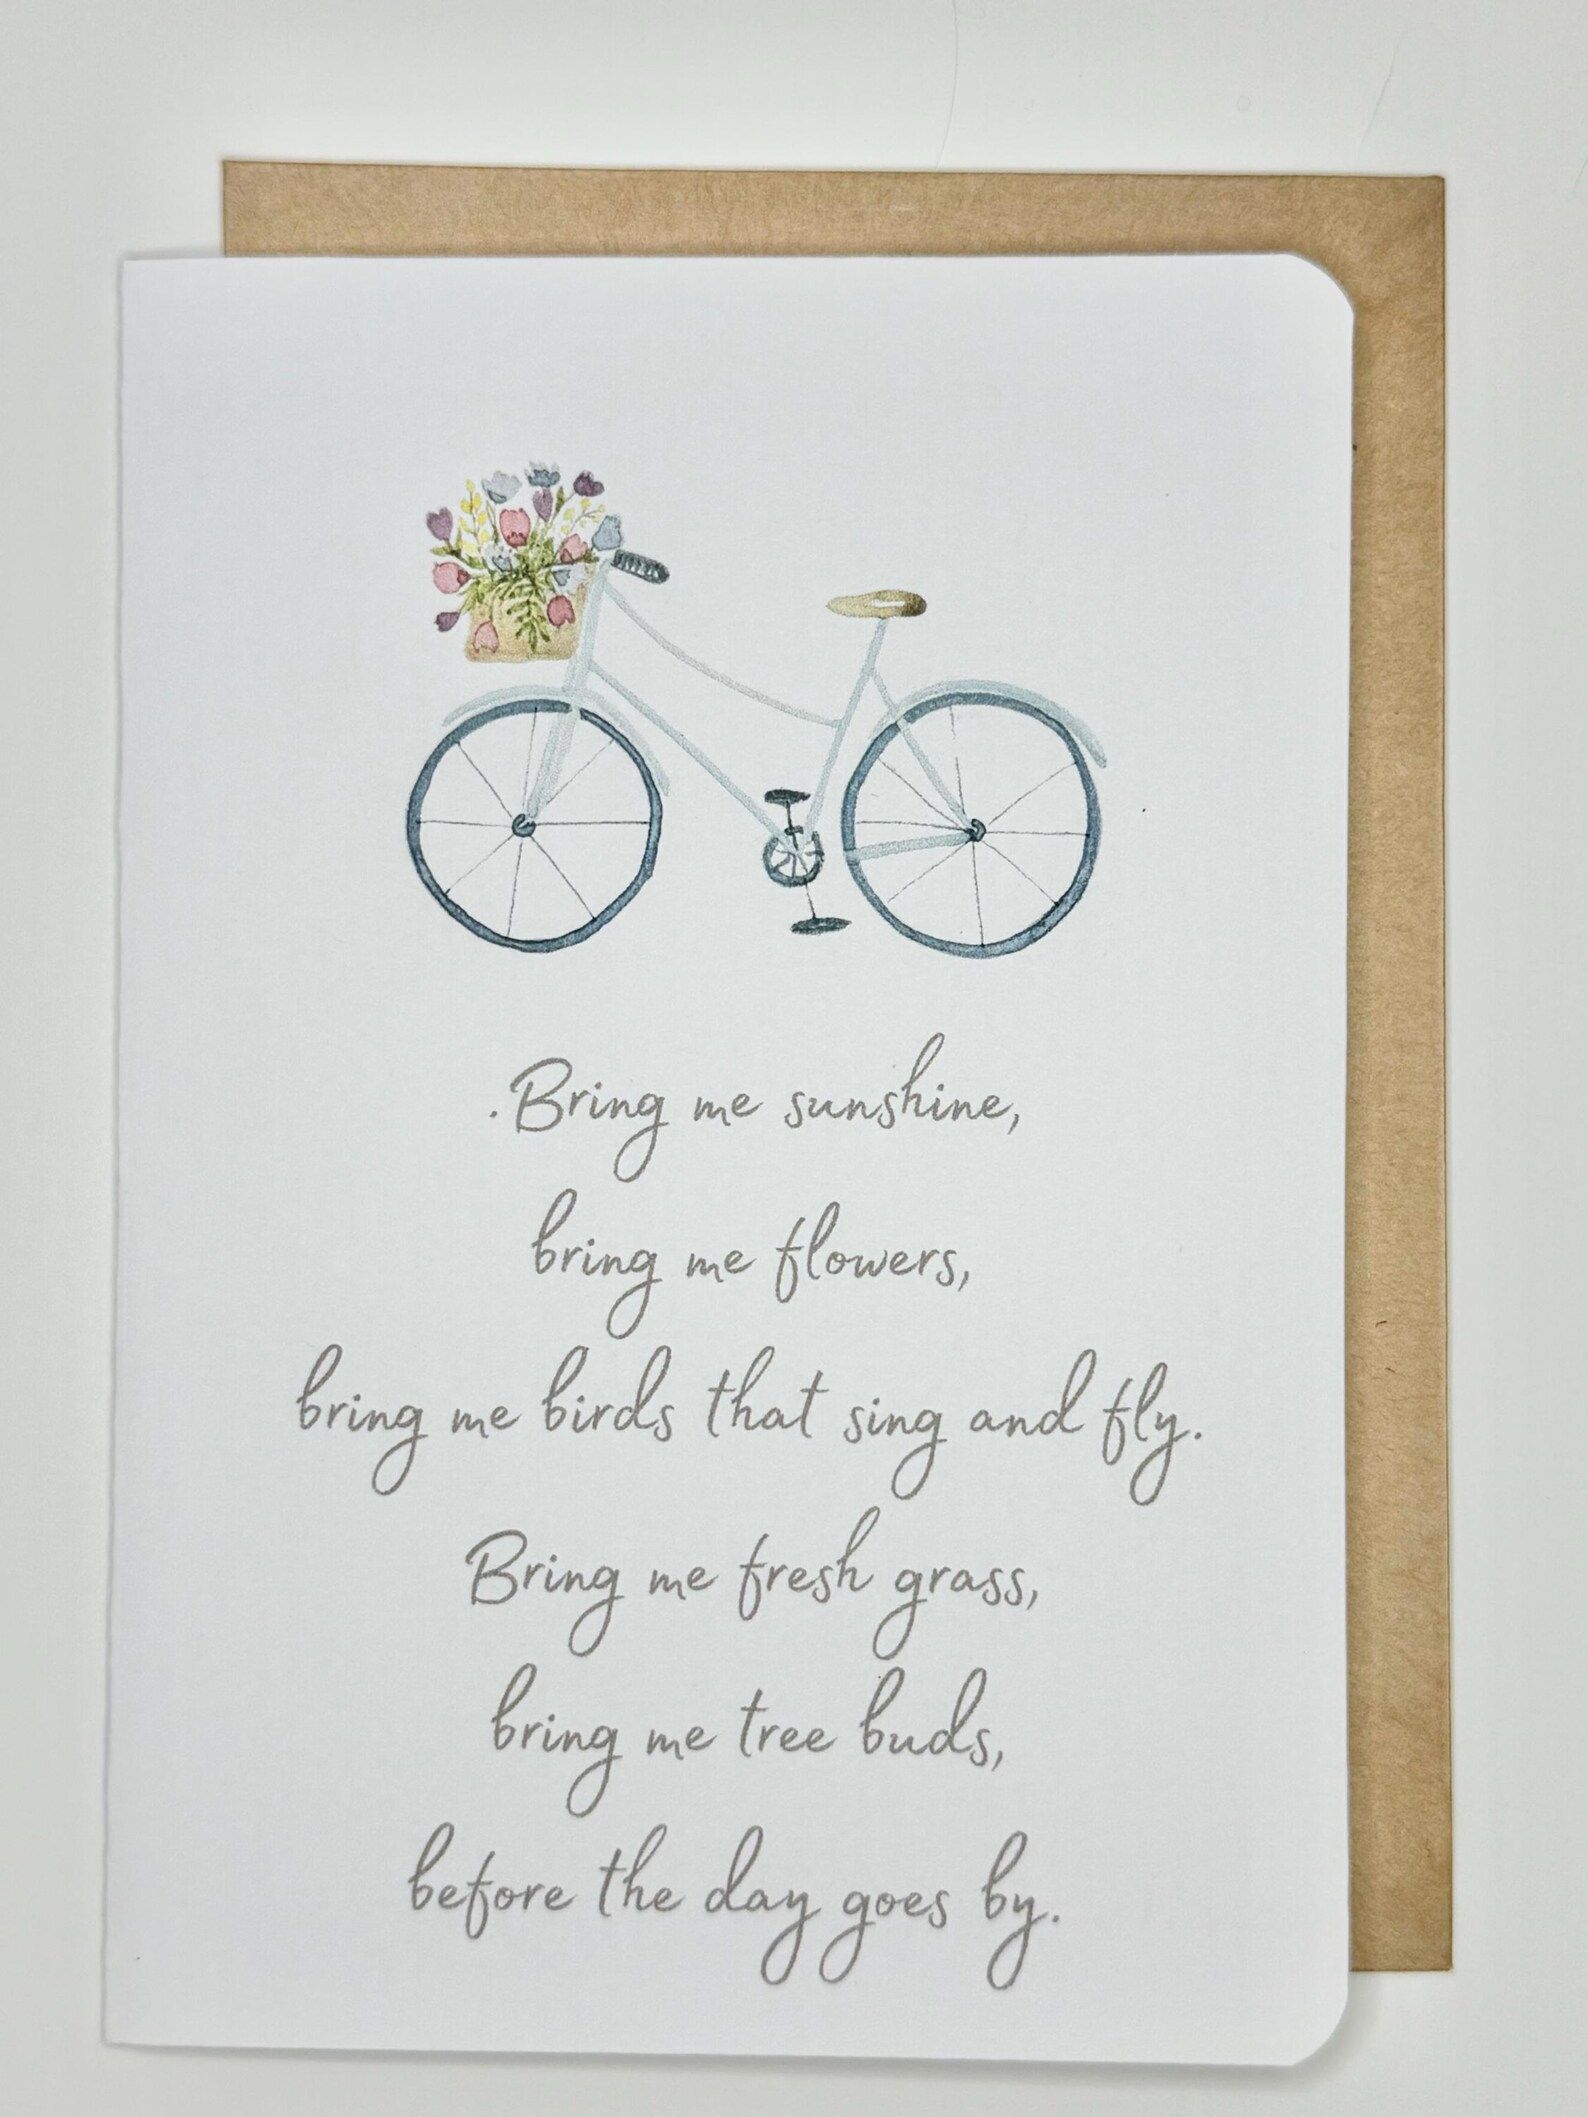 .Bring me sunshine,
bring me flowers,
bring me birds that sing and fly.
Bring me fresh grass,
bring me tree buds,
before the day goes by.